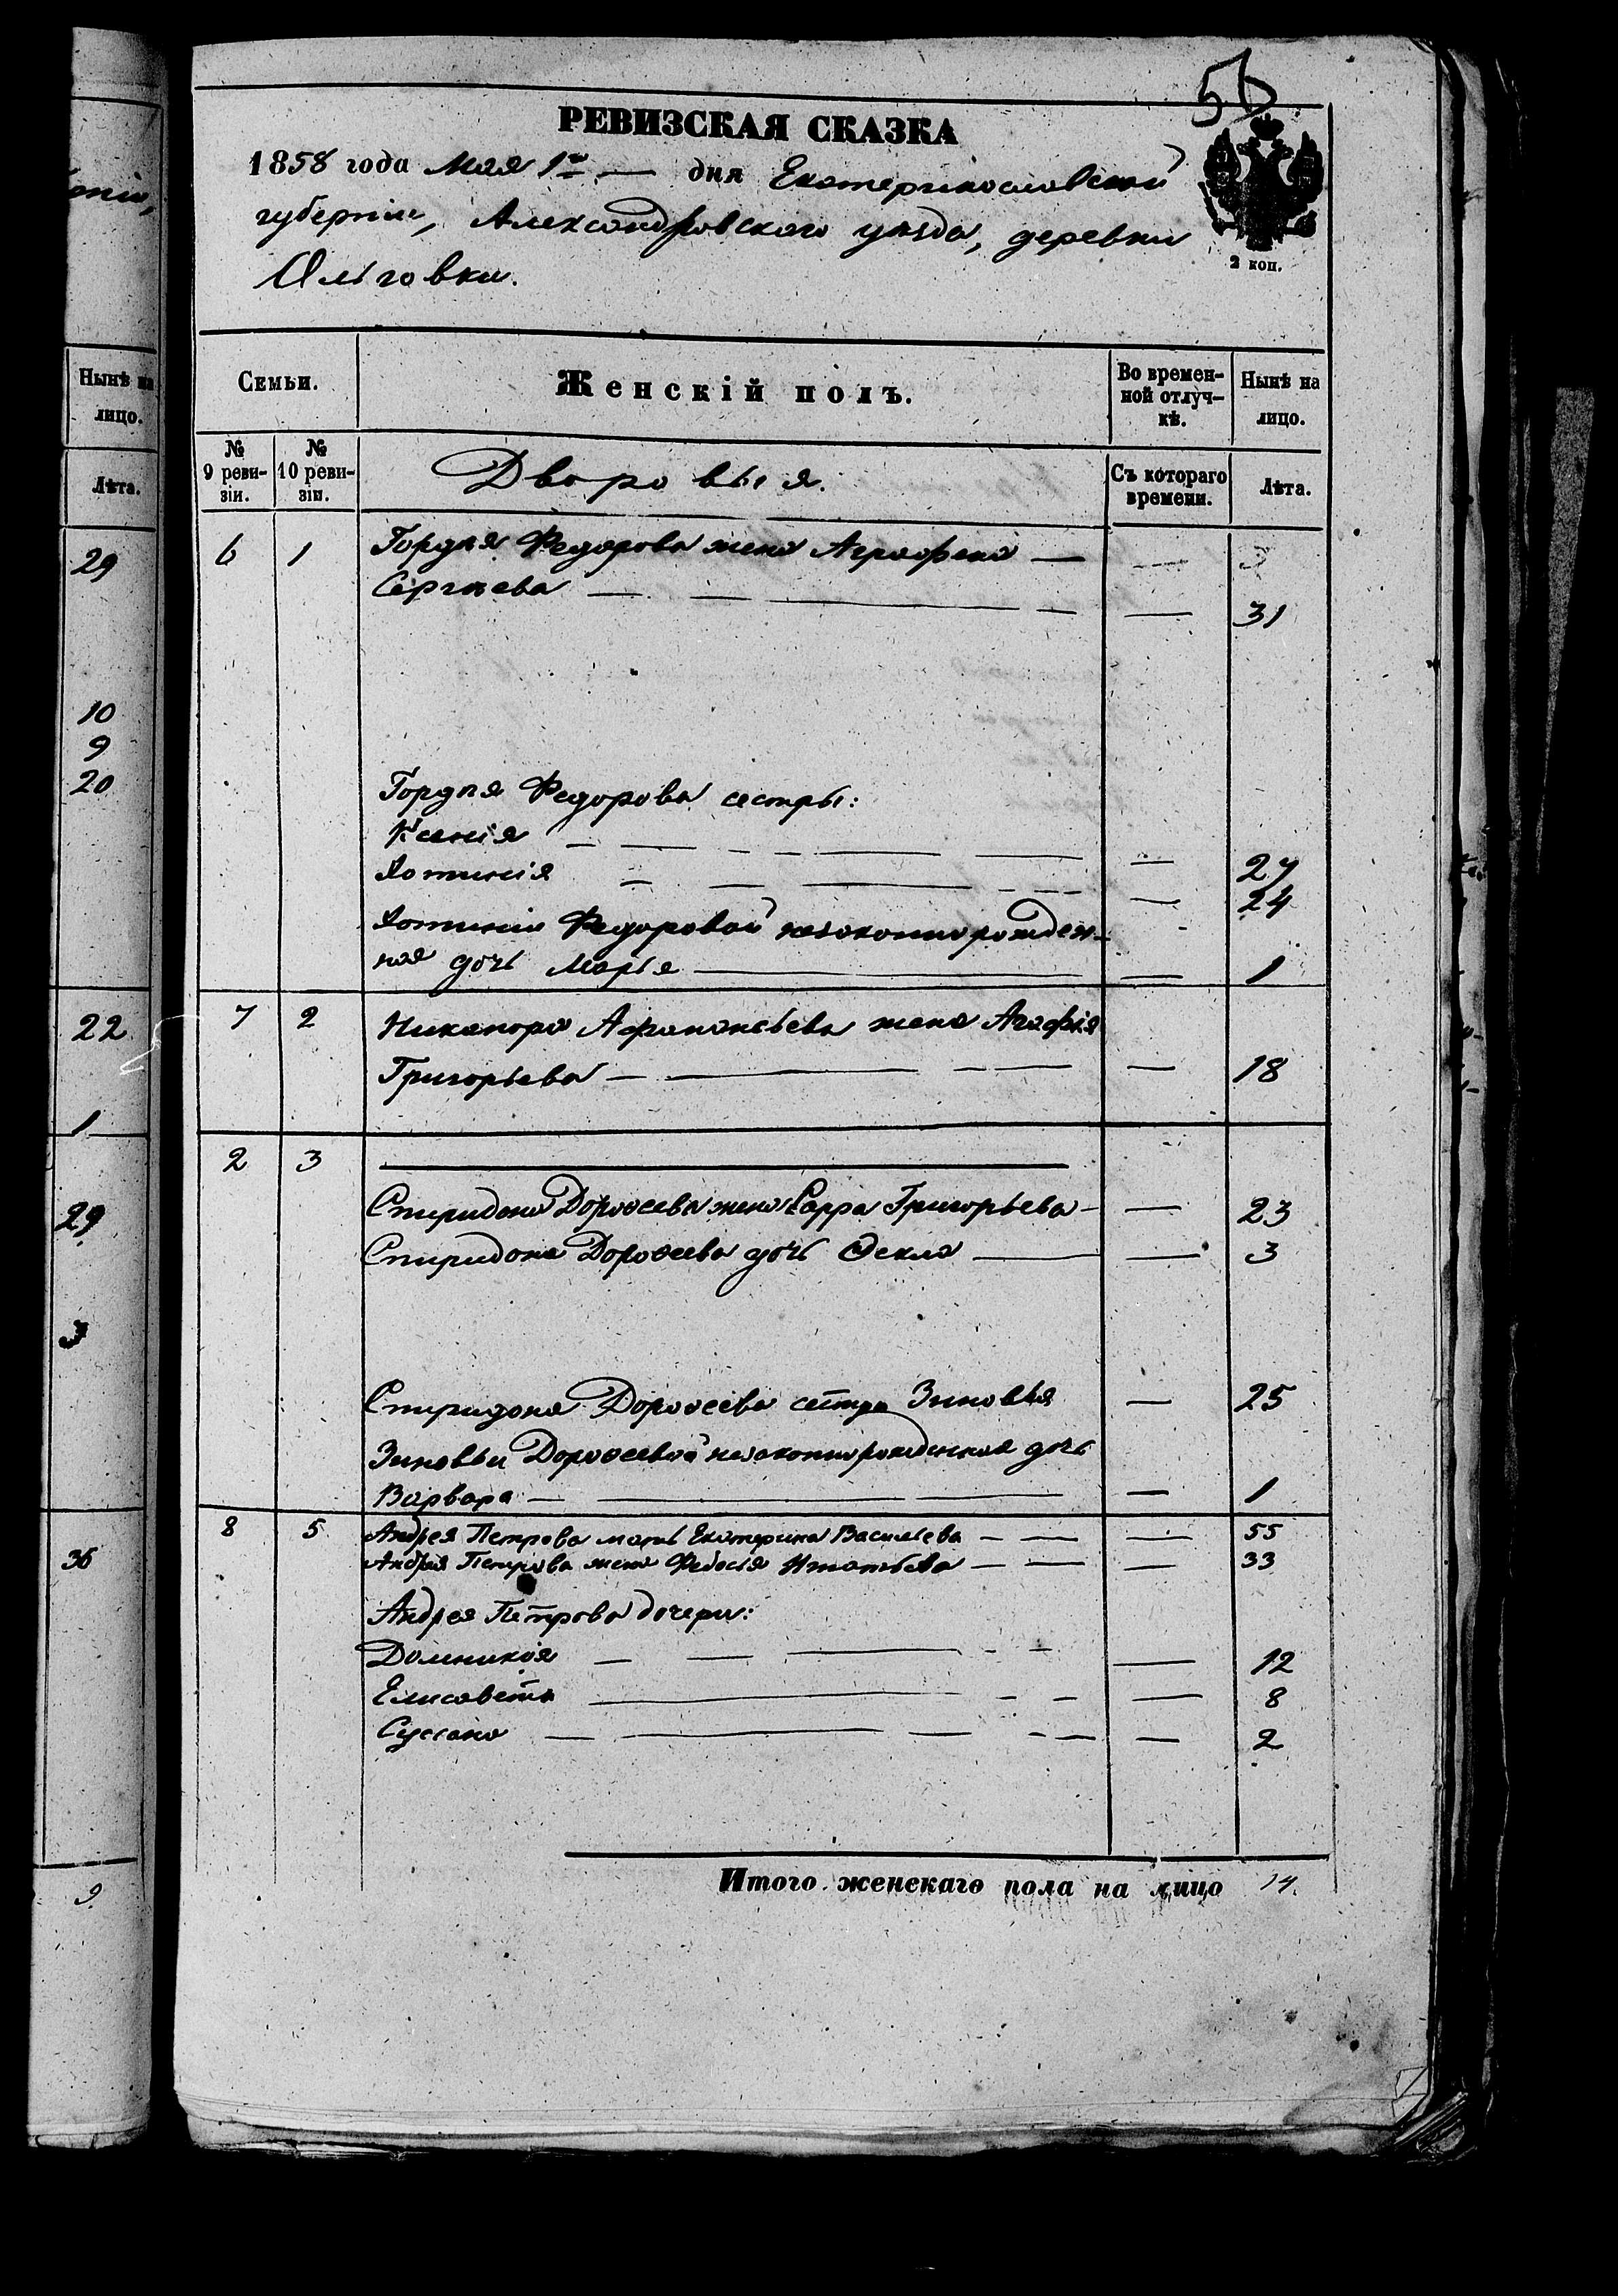 РЕВИЗСКАЯ СКАЗКА
1858 года Мая 1го — дня Екатеринославской
губерніи, Александровскаго уѣзда, деревни
Ольговки.
2 коп.
Семьи. Женскій полъ. Во времен- Нынѣ на
ной отлуч- лицо.
кѣ.
№ № Дворовыя. Съ котораго Лѣта.
9 реви- 10 реви- времени.
зіи. зіи.
6 1 Гордѣя Федорова жена Аграфена —
Сергѣева — — 31
Гордѣя Федорова сестры:
Ксенія — — 27
Фотинія — — 24
Фотиніи Федоровой незаконнорожден-
ная дочь Марья — — 1
7 2 Никанора Афанасьева жена Агафія
Григорьева — — 18
2 3 —
Спиридона Дороѳеева жена Сарра Григорьева — — 23
Спиридона Дороѳеева дочь Ѳекла — — 3
Спиридона Дороѳеева сестра Зиновья — 25
Зиновьи Дороѳеевой незаконнорожденная дочь
Варвара — — 1
8 5 Андрея Петрова мать Екатерина Васильева — — 55
Андрея Петрова жена Федосія Игнатьева — — 33
Андрея Петрова дочери:
Домникія — — 12
Елисавета — — 8
Сусана — — 2
Итого женскаго пола на лицо 14.
Нынѣ на
лицо.
Лѣта.
29
10
9
20
22
1
29
3
36
9.